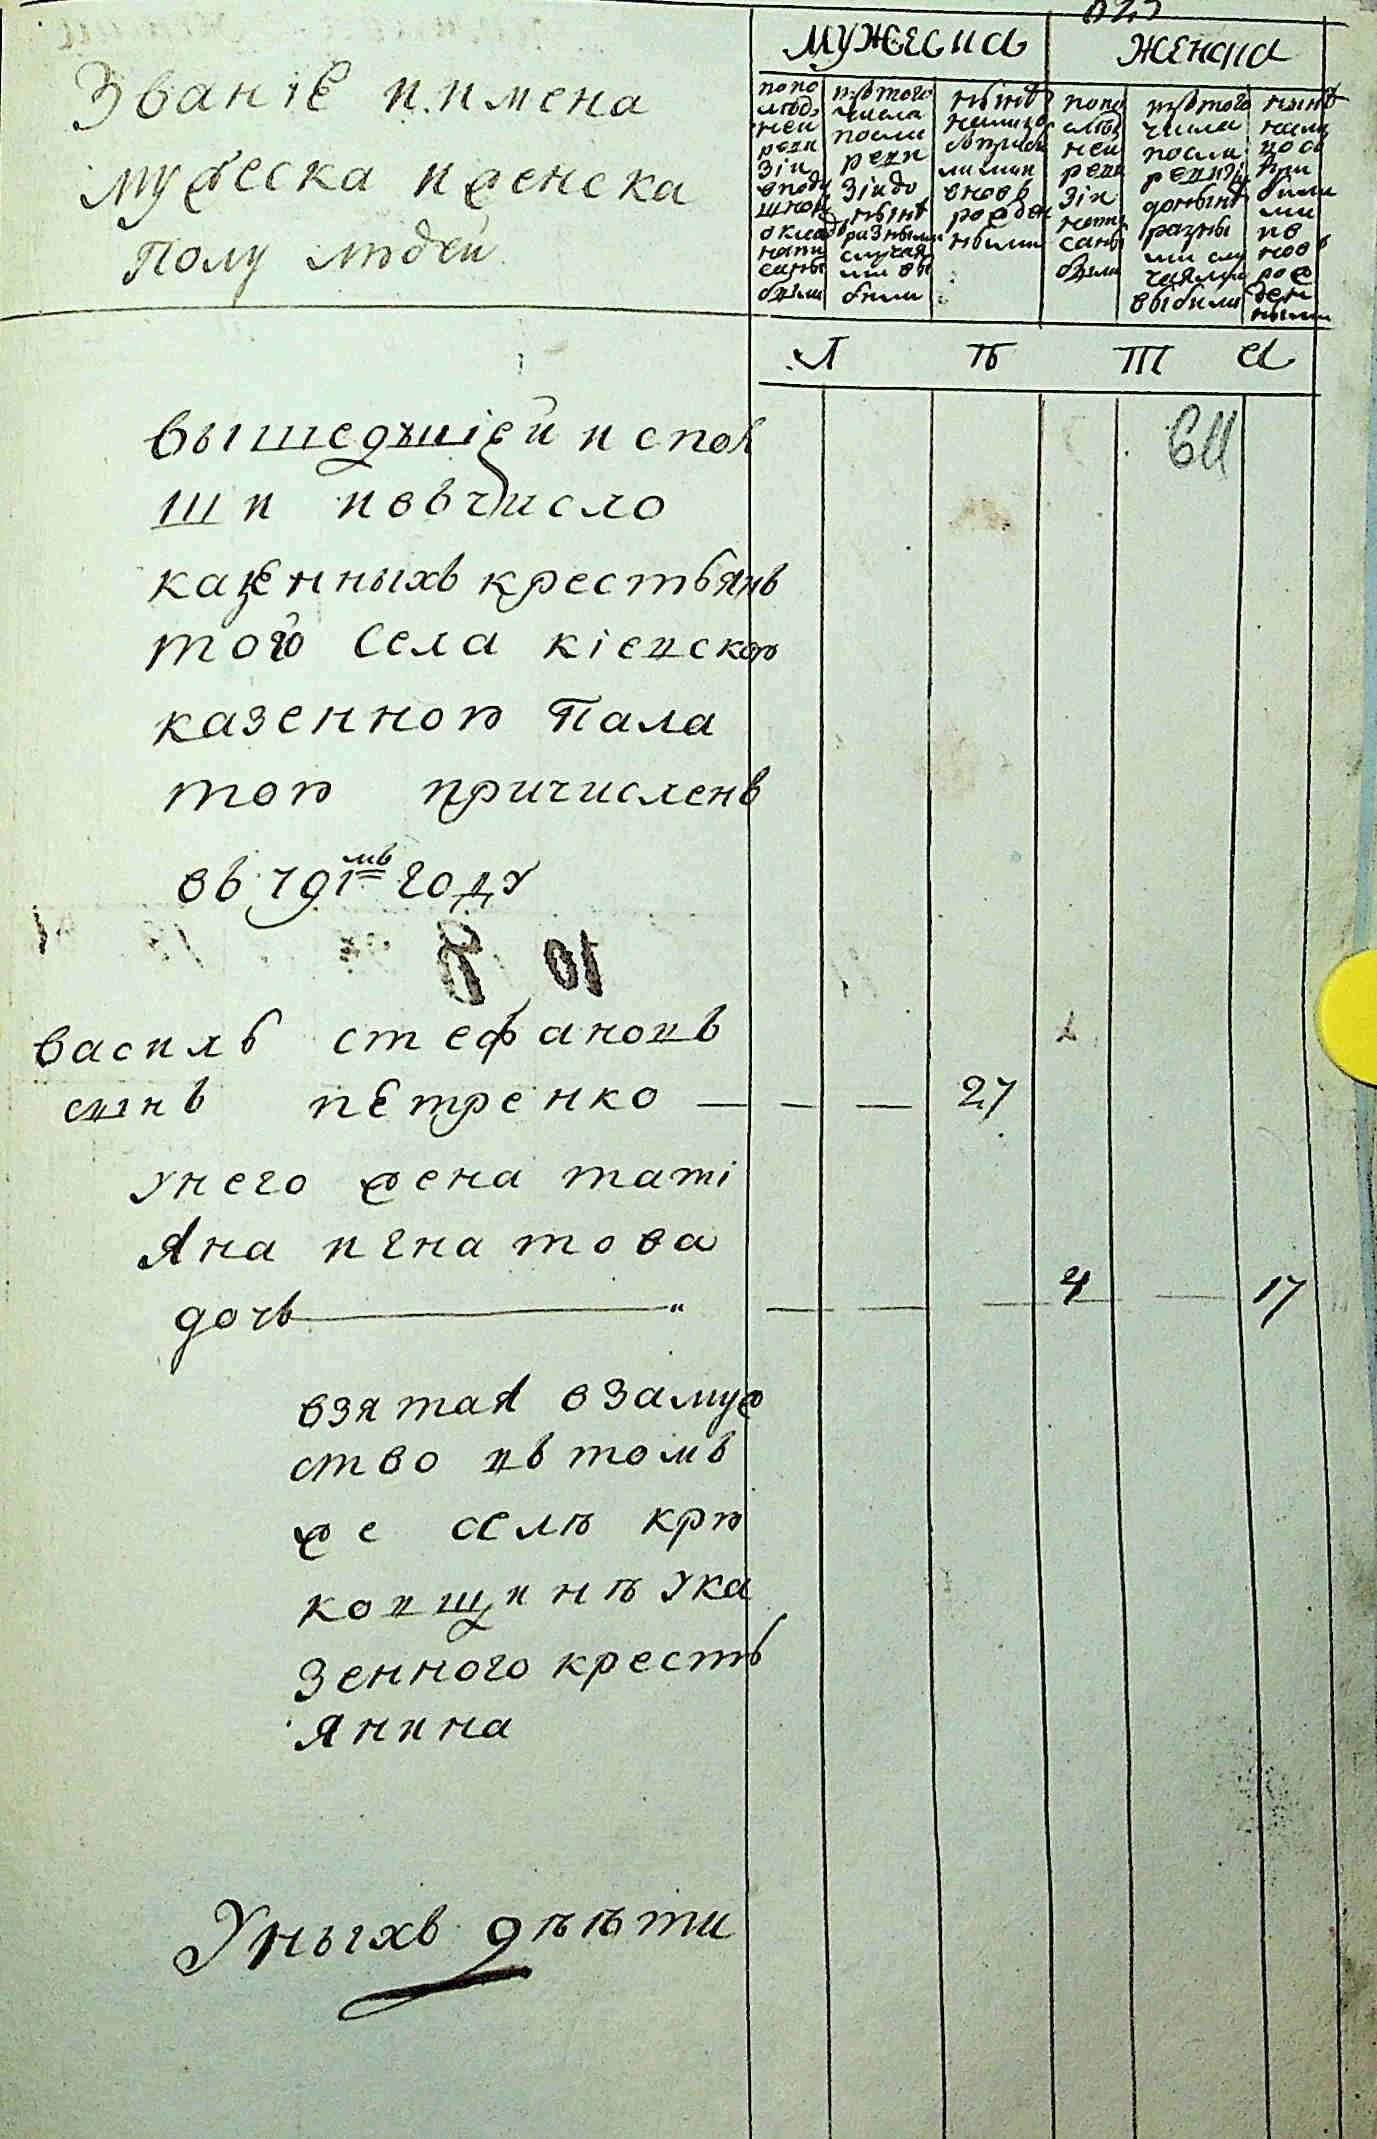 мужеска
женска
Званіе и имена
мужеска и женска
полу людей
по по
следней
реви
зіи
в поду
шном
окладѣ
напи
саны
были
изъ того
числа
после
реви
зіи до
нынѣ
разными
случая
ми вы
были
нынѣ
на лицо
съ прибы
лыми и
вновь
рожден
ными
по по
след
ней
реви
зіи
напи
саны
были
изъ того
числа
после
ревизіи
до нынѣ
разны
ми слу
чаями
выбыли
нынѣ
на ли
цо съ
при
былы
ми
и в
новь
рож
ден
ными
Л Ѣ Т А
вышедшіей и спол
ши и въ число
казенныхъ крестьянъ
того села кіевскою
казенною Пала
тою причисленъ
въ 791мъ году
василь стефановъ
сынъ петренко — — — 27
у него жена таті
Яна игнатова
дочь — " — — — 4 — 17
взятая в замуж
ство въ томъ
же селѣ крю
ковщинѣ у ка
зенного кресть
Янина
У ныхъ дѣѣти